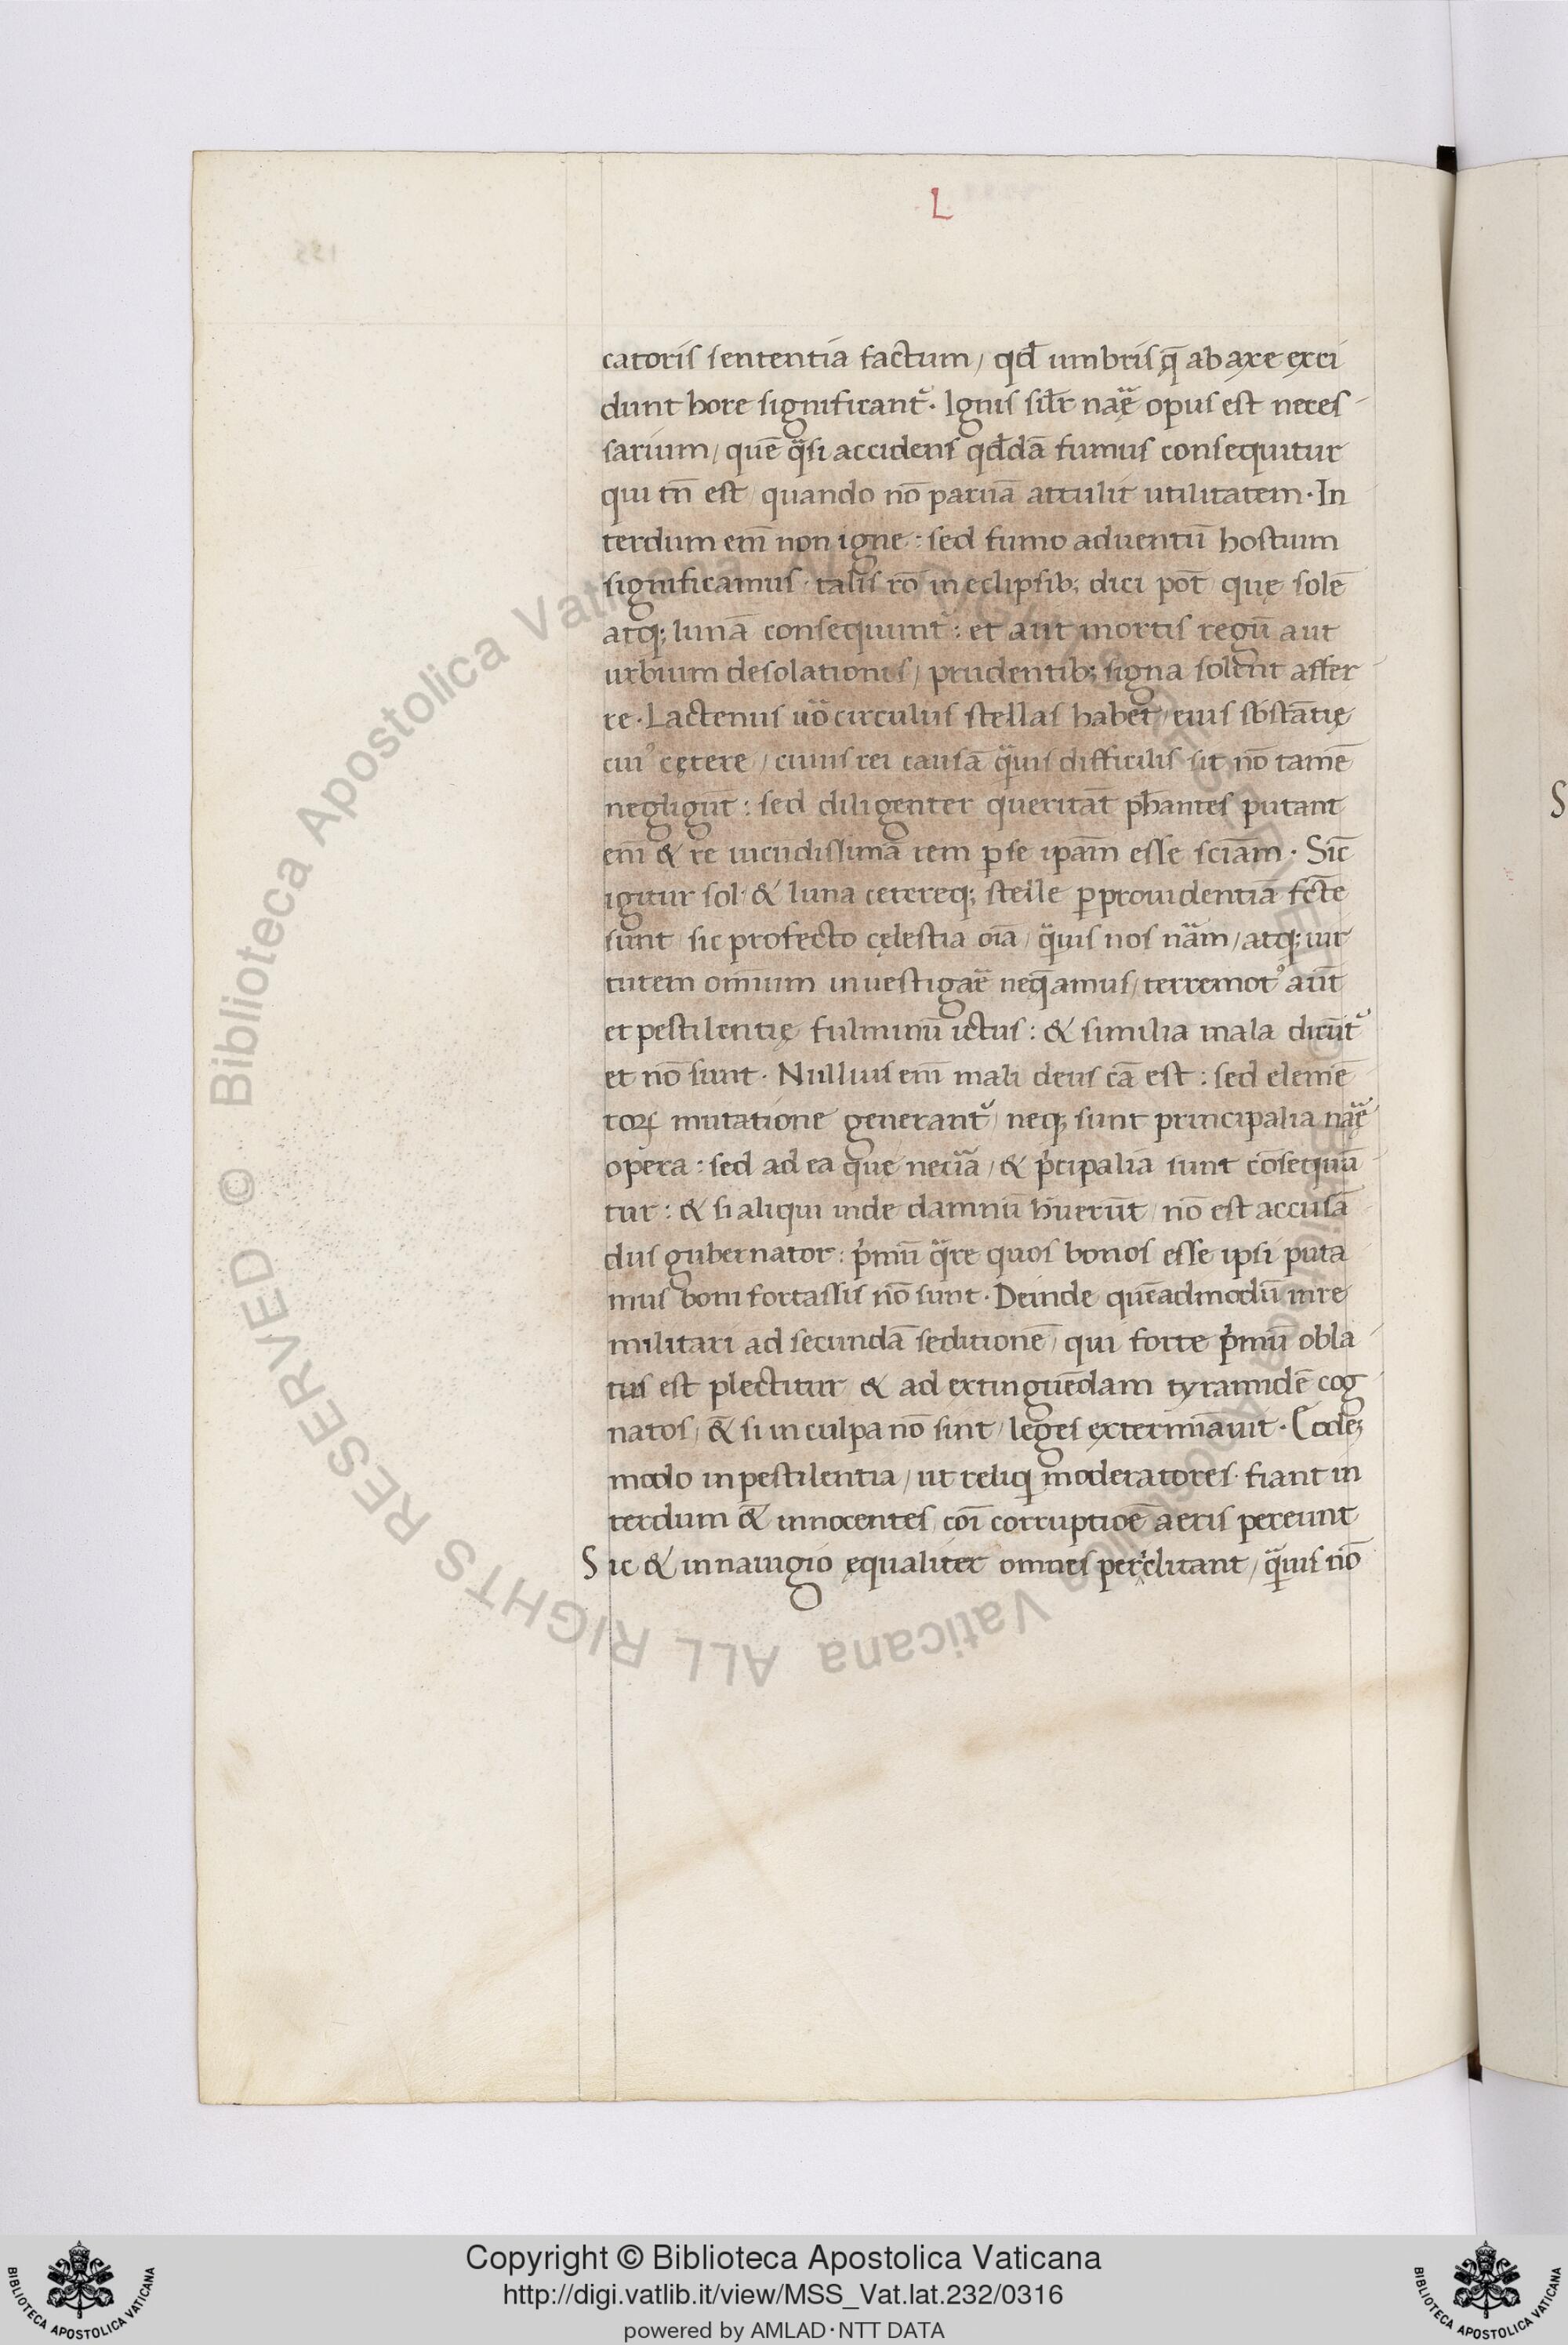 L
catoris sententia factum / qđ umbris q̄ ab axe exci
dunt hore significant᷑. Ignis sil̄r naẽ opus est neces
sarium / quē q̈si accidens qd̄dā fumus consequitur
qui tn̄ est / quando nō paruā attulit utilitatem. In
terdum em̄ non igne : sed fumo aduentū hostium
significamus. talis rō in eclipsib; dici pōt quę solē
atq; lunā consequunt᷑ : et aut mortis regū aut
urbium desolationis / prudentib; signa solent affer
re. Lactenus uō circulus stellas habet / eius sb̄stātię
cui᷒ cętere / cuius rei causā q̈uis difficilis sit nō tamē
negligūt : sed diligenter queritāt ph̄antes putant
em̄ & re iucūdissimā rem p̱ se ip̄am esse sciām. Sic̄
igitur sol & luna cetereq; stelle p̱ prouidentiā fct̄e
sunt / sic profecto cęlestia oīa / q̈uis nos nām / atq; uir
tutem omīum inuestigaē neq̄amus / terremot᷒ aūt
et pestilentię fulminū ictus : & similia mala dicūt᷑
et nō sunt. Nullius em̄ mali deus cā est : sed elemē
toꝝ mutatione generant᷑ / neq; sunt principalia naę̄
opera : sed ad ea quę neciā / & p̍cipalia sunt cōsequū
tur : & si aliqui inde damnū h̄uerūt / nō est accusā
dus gubernator : p̍mū q̈re quos bonos esse ipsi puta
mus boni fortassis nō sunt. Deinde quēadmodū in re
militari ad secundā seditionē / qui forte p̍mū obla
tus est plectitur & ad extinguēdam tyrannidē cog
natos / &̄ si in culpa nō sint / leges extermīauit. Eodē
modo in pestilentia / ut reliq̍ moderatores fiant in
terdum &̄ innocentes / coī corruptiōe aeris pereunt
Sic & in nauigio ęqualiter omnes periclitant / q̈uis nō
S
Copyright © Biblioteca Apostolica Vaticana
http://digi.vatlib.it/view/MSS_Vat.lat.232/0316
powered by AMLAD·NTT DATA
BIBLIOTECA APOSTOLICA VATICANA
BIBLIOTECA APOSTOLICA VATICANA
© Biblioteca Apostolica Vaticana ALL RIGHTS RESERVED